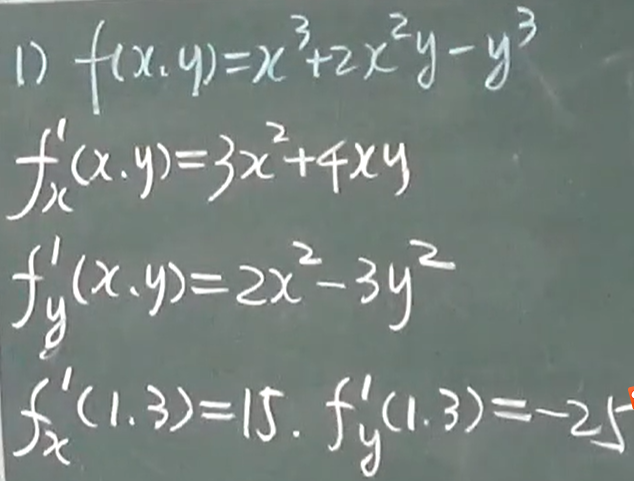 1) f(x.y)=x³+2x²y-y³
f'ₓ(x.y)=3x²+4xy
f'y(x.y)=2x²-3y²
f'ₓ(1.3)=15. f'y(1.3)=-25